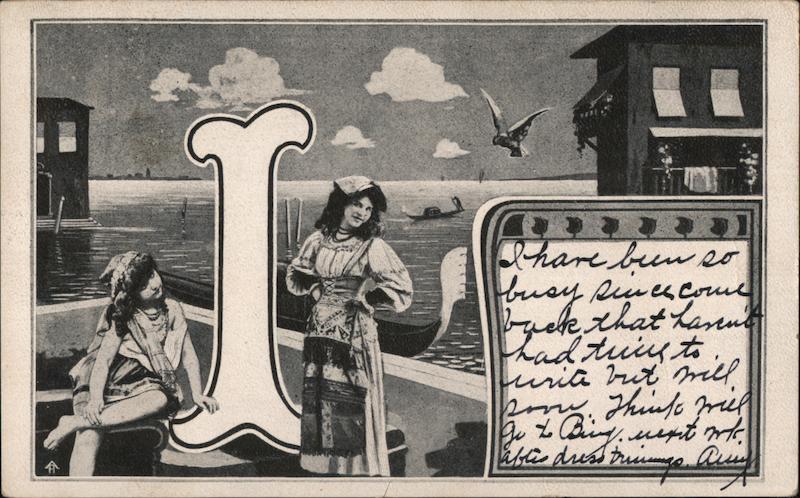 I
I have been so
busy since come
back that haven't
had time to
write but will
soon. Think will
go to Bing. next wk.
after dress trimmings. Amy